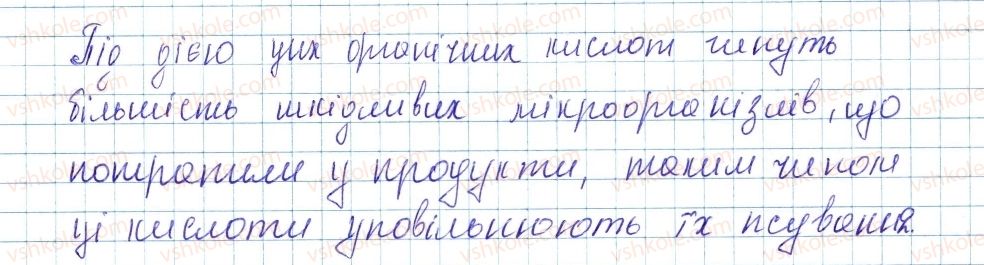 Під дією цих органічних кислот гинуть
більшість шкідливих мікроорганізмів, що
потрапили у продукти, таким чином
ці кислоти уповільнюють їх псування.